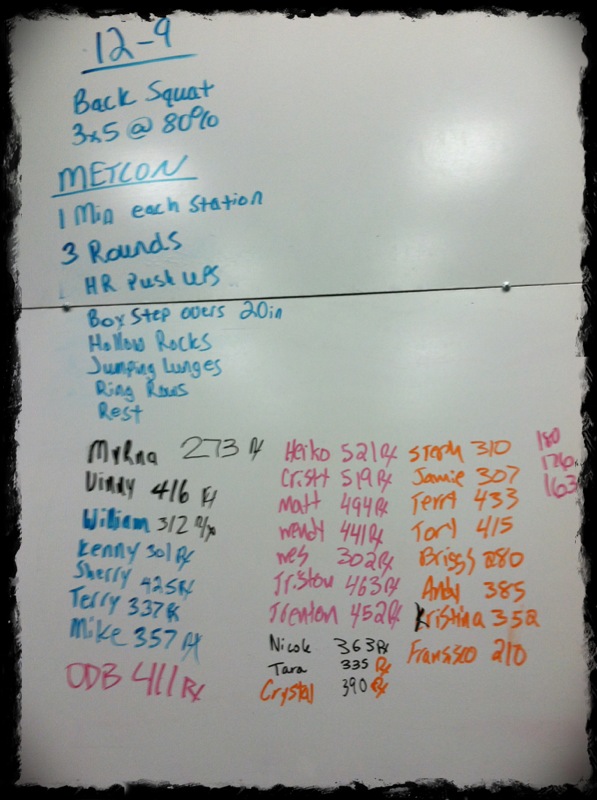 12-9
Back Squat
3x5 @ 80%
METCON
1 Min each station
3 Rounds
HR Push UPS
Box Step overs 20in
Hollow Rocks
Jumping Lunges
Ring Rows
Rest
Myrna 273 Rx
Vindy 416 Rx
William 312 Rx
Kenny 301 Rx
Sherry 425 Rx
Terry 337 Rx
Mike 357 Rx
ODB 411 Rx
Heiko 521 Rx
519 Rx
Matt 494 Rx
wendy 441 Rx
wes 302 Rx
Triston 463 Rx
Trenton 452 Rx
Nicole 363 Rx
Tara 335 Rx
Crystal 390 Rx
Steph 310
Jamie 307
Terry 433
Tory 415
Briggs 280
Andy 385
Kristina 352
Fransisco 210
180
163